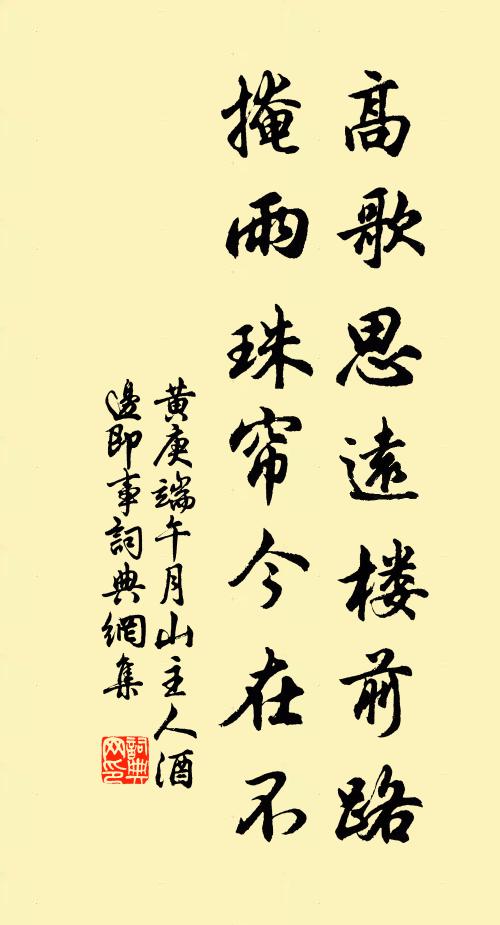 高歌思遠楼前路
掩雨珠帘今在不
黄庚端午月山主人酒
邊即事詞典網集
詞典
网印